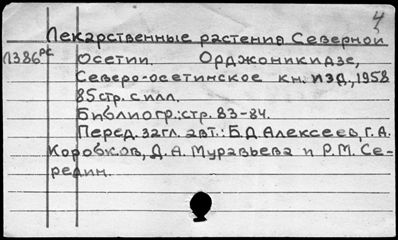 4
Лекарственные растения Северной
Л386рс Осетии. Орджоникидзе,
Северо-осетинское кн. изд., 1958
85 стр. с илл.
Библиогр.: стр. 83-84.
Перед. загл. авт.: Б.Д Алексеев, Г.А.
Коробков, Д.А. Муравьева и Р.М. Се-
редин.